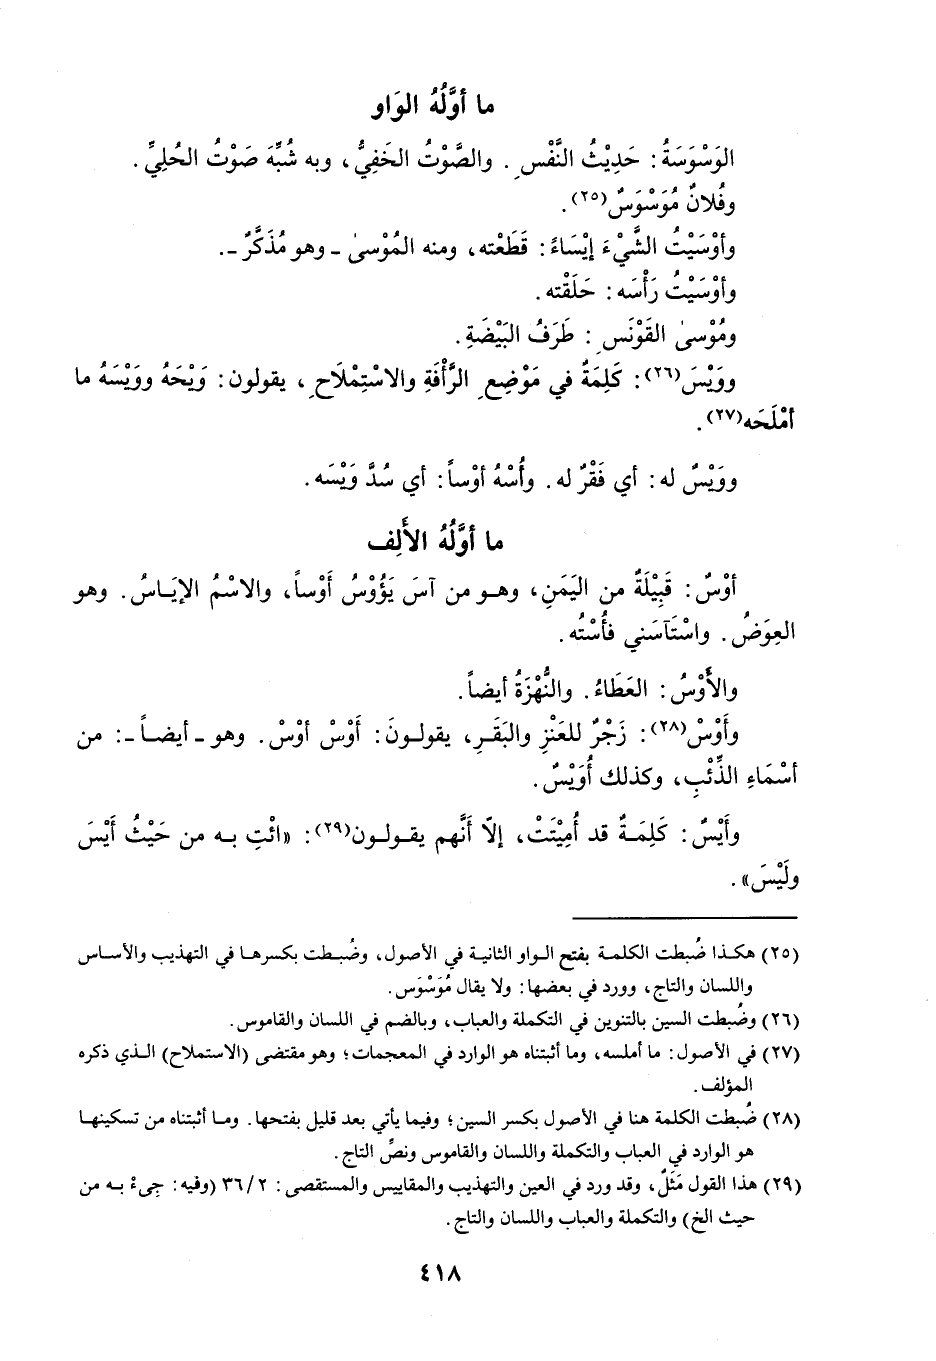 ما أوَّلُهُ الوَاو
الوَسْوَسَةُ: حَدِيْثُ النَّفْسِ. والصَّوْتُ الخَفِيُّ، وبه شُبِّهَ صَوْتُ الحُلِيِّ.
وفُلانٌ مُوَسْوَسٌ(٢٥).
وأوْسَيْتُ الشَّيْءَ إيْسَاءً: قَطَعْته، ومنه المُوْسىٰ ـ وهو مُذَكَّرٌ ـ.
وأوْسَيْتُ رَأْسَه: حَلَقْته.
ومُوْسىٰ القَوْنَسِ: طَرَفُ البَيْضَةِ.
ووَيْسَ(٢٦): كَلِمَةٌ في مَوْضِعِ الرَّأْفَةِ والاسْتِمْلَاحِ، يقولون: وَيْحَهُ ووَيْسَهُ ما
أمْلَحَه(٢٧).
ووَيْسٌ له: أي فَقْرٌ له. وأُسْهُ أوْساً: أي سُدَّ وَيْسَه.
ما أوَّلُهُ الأَلِف
أوْسٌ: قَبِيْلَةٌ من اليَمَنِ، وهـو من آسَ يَؤُوْسُ أَوْساً، والاسْمُ الإيَـاسُ. وهو
العِوَضُ. واسْتَآسَني فأُسْتُه.
والأَوْسُ: العَطَاءُ. والنُّهْزَةُ أيضاً.
وأَوْسْ(٢٨): زَجْرٌ للعَنْزِ والبَقَرِ، يقولـونَ: أَوْسْ أوْسْ. وهو ـ أيضـاً ـ: من
أسْمَاءِ الذِّئْبِ، وكذلك أُوَيْسٌ.
وأَيْسٌ: كَلِمَـةٌ قد أُمِيْتَتْ، إلّا أَنَّهم يقـولـون(٢٩): «ائْتِ بـه من حَيْثُ أَيْسَ
ولَيْسَ».
(٢٥) هكـذا ضُبطت الكلمـة بفتح الـواو الثانيـة في الأصول، وضُبـطت بكسرهـا في التهذيب والأساس
واللسان والتاج، وورد في بعضها: ولا يقال مُوَسْوَس.
(٢٦) وضُبطت السين بالتنوين في التكملة والعباب، وبالضم في اللسان والقاموس.
(٢٧) في الأصول: ما أملسه، وما أثبتناه هو الوارد في المعجمات؛ وهو مقتضى (الاستملاح) الـذي ذكره
المؤلف.
(٢٨) ضُبطت الكلمة هنا في الأصول بكسر السين؛ وفيما يأتي بعد قليل بفتحها. ومـا أثبتناه من تسكينهـا
هو الوارد في العباب والتكملة واللسان والقاموس ونصِّ التاج.
(٢٩) هذا القول مَثَلٌ، وقد ورد في العين والتهذيب والمقاييس والمستقصى: ٣٦/٢ (وفيه: جِىءْ بـه من
حيث الخ) والتكملة والعباب واللسان والتاج.
٤١٨